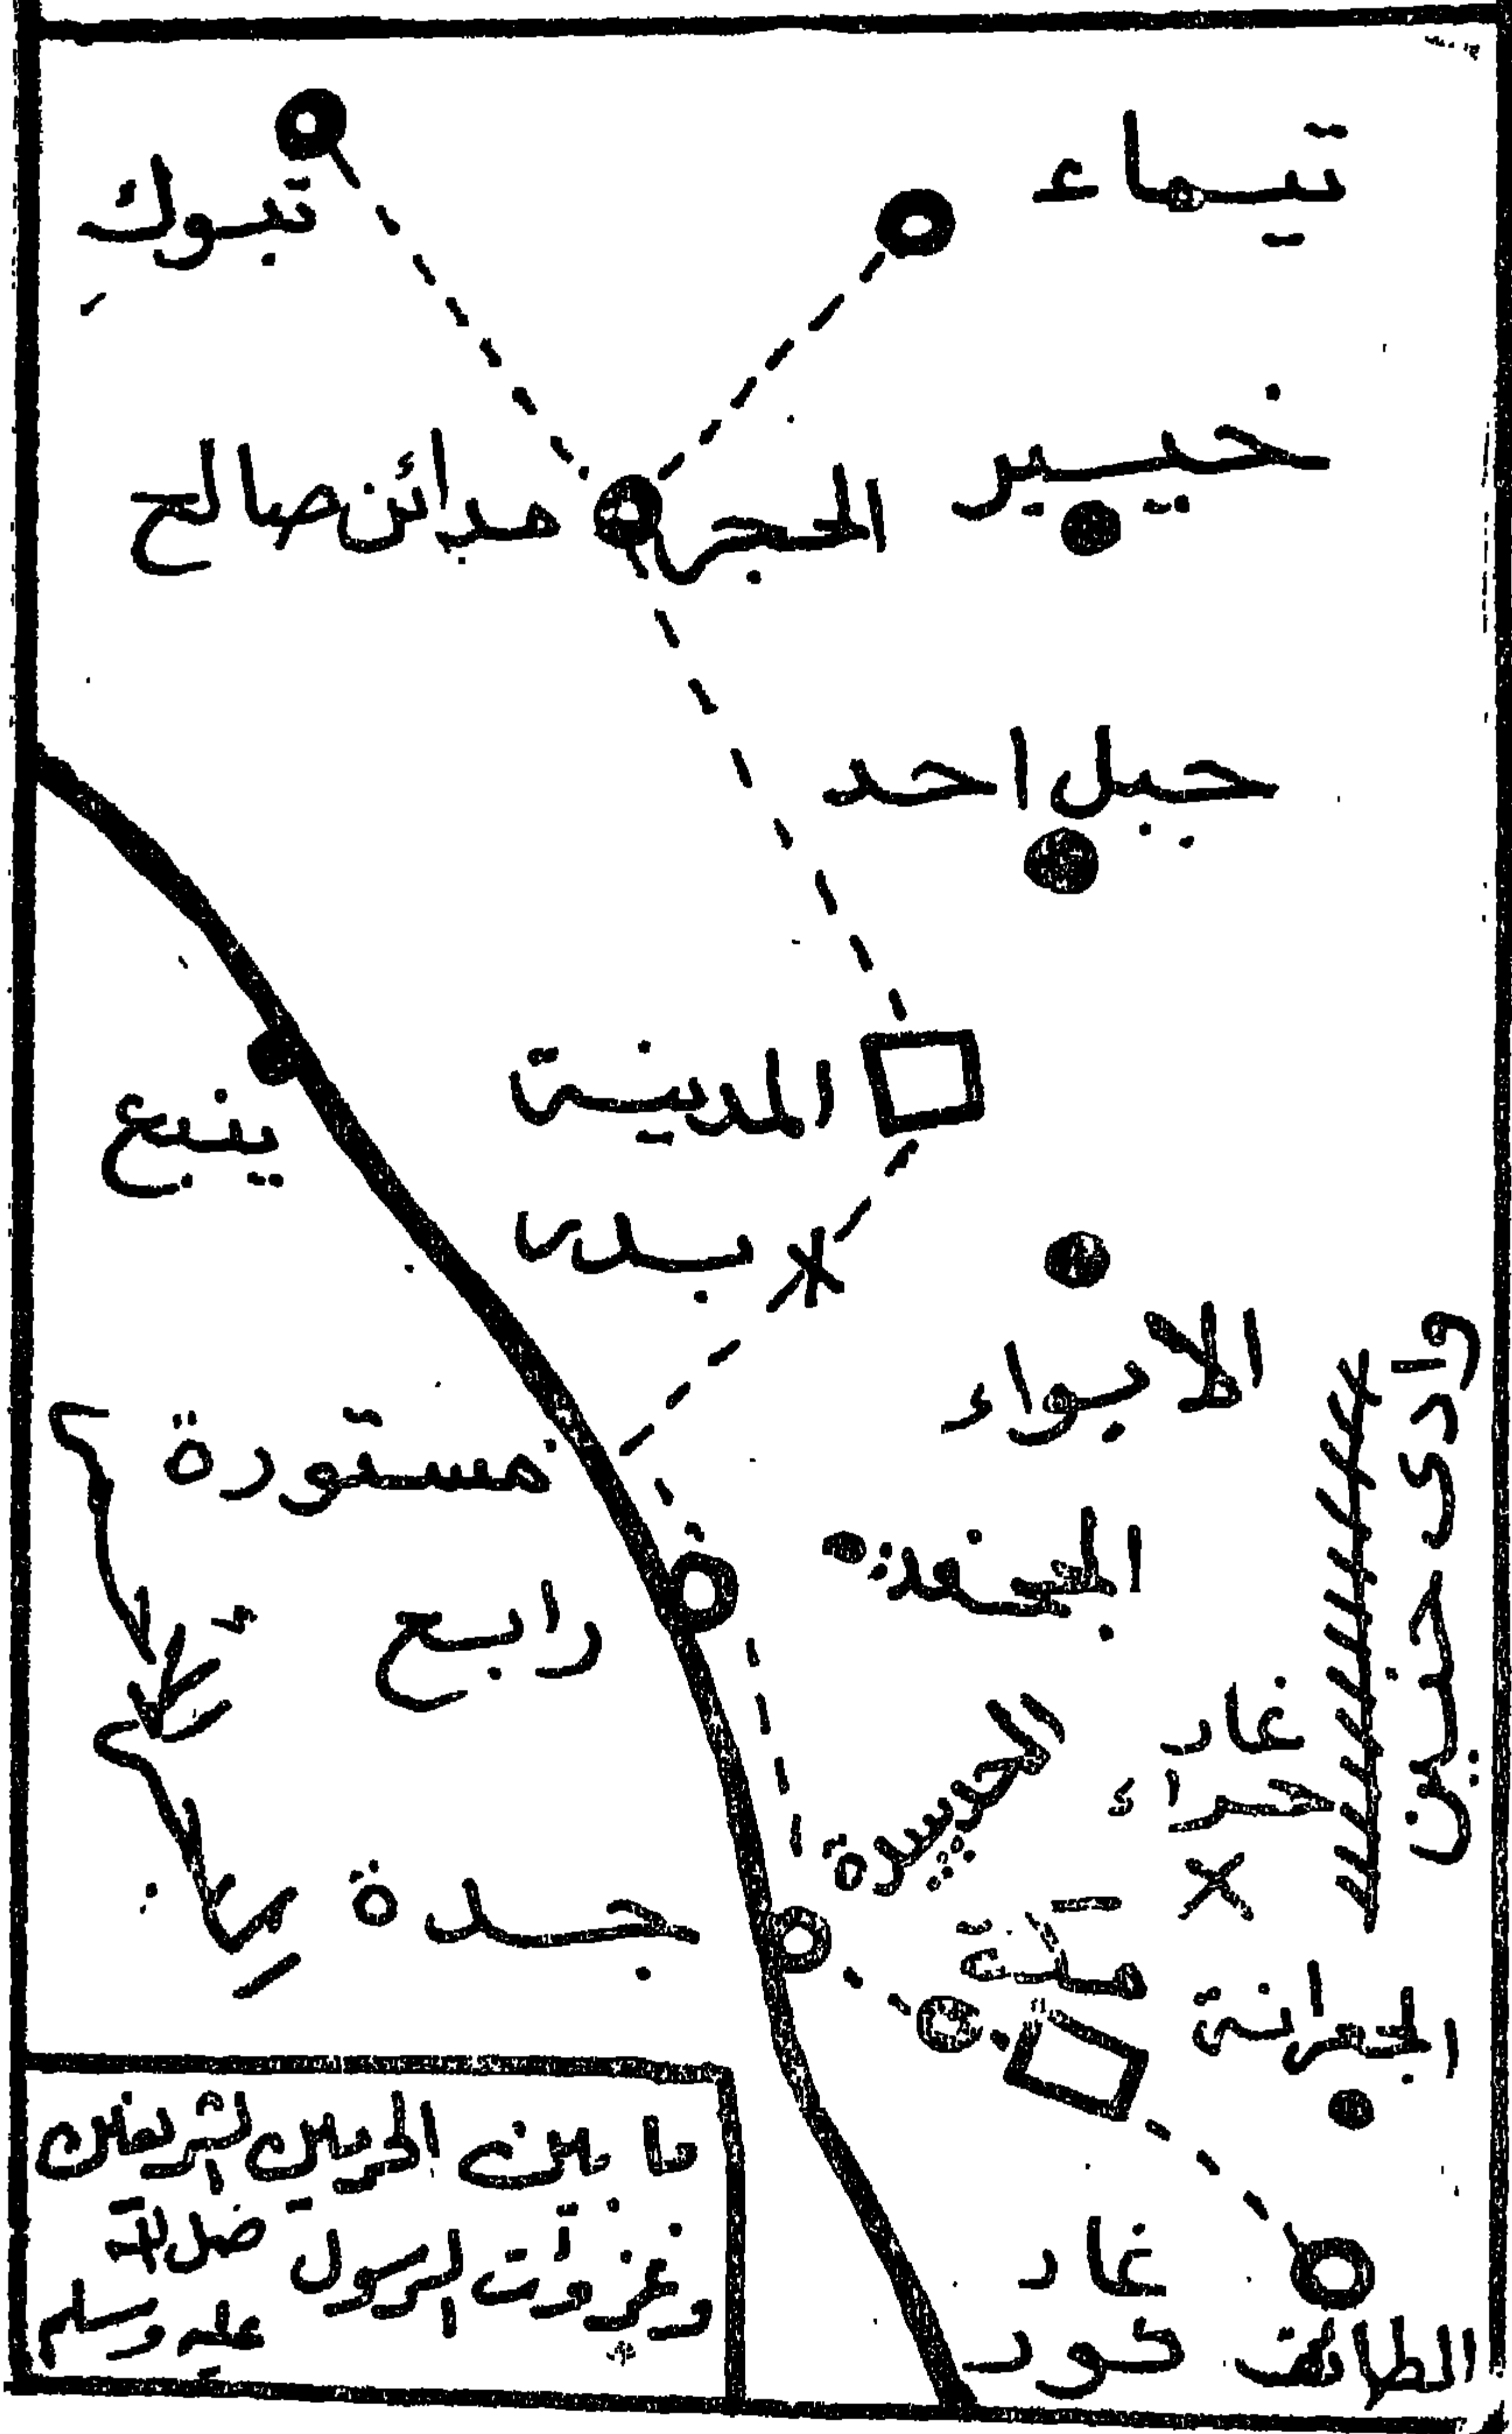 تيماء
تبوك
خيبر
الحجر
مدائن صالح
جبل احد
المدينة
ينبع
بدر
الابواء
وادى حنين
مستورة
الجحفة
رابغ
غار
حراء
جدة
مكة
الجعرانة
غار
ثور
الطائف
ما بين الحرمين الشريفين
وغزوات الرسول صلى الله
عليه وسلم